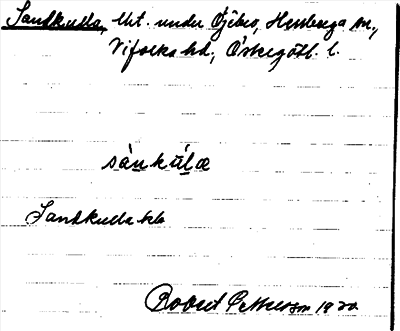 Sandkulla, Utj. under Öjebro, Herrberga sn.,
Vifolka hd, Östergötl. l.
sànkúlæ
Sandkulla hb
Robert Pettersson 1920